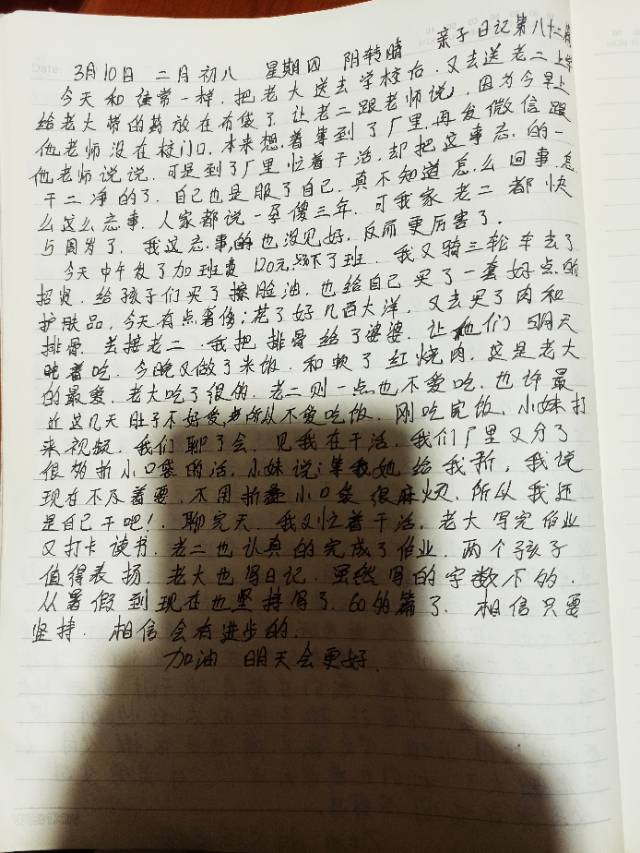 亲子日记第八十二篇
3月10日 二月初八 星期四 阴转晴
今天和往常一样.把老大送去学校后.又去送老二上学
给老大带的药放在布袋了.让老二跟老师说,因为今早上
他老师没在校门口.本来想着等到了厂里再发微信跟
他老师说说.可是到了厂里忙着干活.却把这事忘.的一
干二净的了.自己也是服了自己.真不知道怎么回事.怎
么这么忘事.人家都说一孕傻三年.可我家老二都快
5周岁了.我这忘事的也没见好.反而更厉害了.
今天中午发了加班费120元.下了班.我又骑三轮车去了
招贤.给孩子们买了擦脸油.也给自己买了一套好点的
护肤品,今天有点奢侈;花了好几百大洋.又去买了肉和
排骨.去接老二.我把排骨给了婆婆.让他们明天
炖着吃.今晚又做了米饭.和炖了红烧肉.这是老大
的最爱.老大吃了很多.老二则一点也不爱吃.也许最
近这几天肚子不好受.所以不爱吃饭.刚吃完饭.小妹打
来视频.我们聊了会.见我在干活.我们厂里又分了
很多折小口袋的活.小妹说:拿我她给我折,我说
现在不着要.不用折叠小口袋很麻烦.所以我还
是自己干吧!.聊完天.我又忙着干活.老大写完作业
又打卡读书.老二也认真的完成了作业.两个孩子
值得表扬.老大也写日记.虽然写的字数不多.
从暑假到现在也坚持写了.60多篇了.相信只要
坚持.相信会有进步的.
加油 明天会更好.